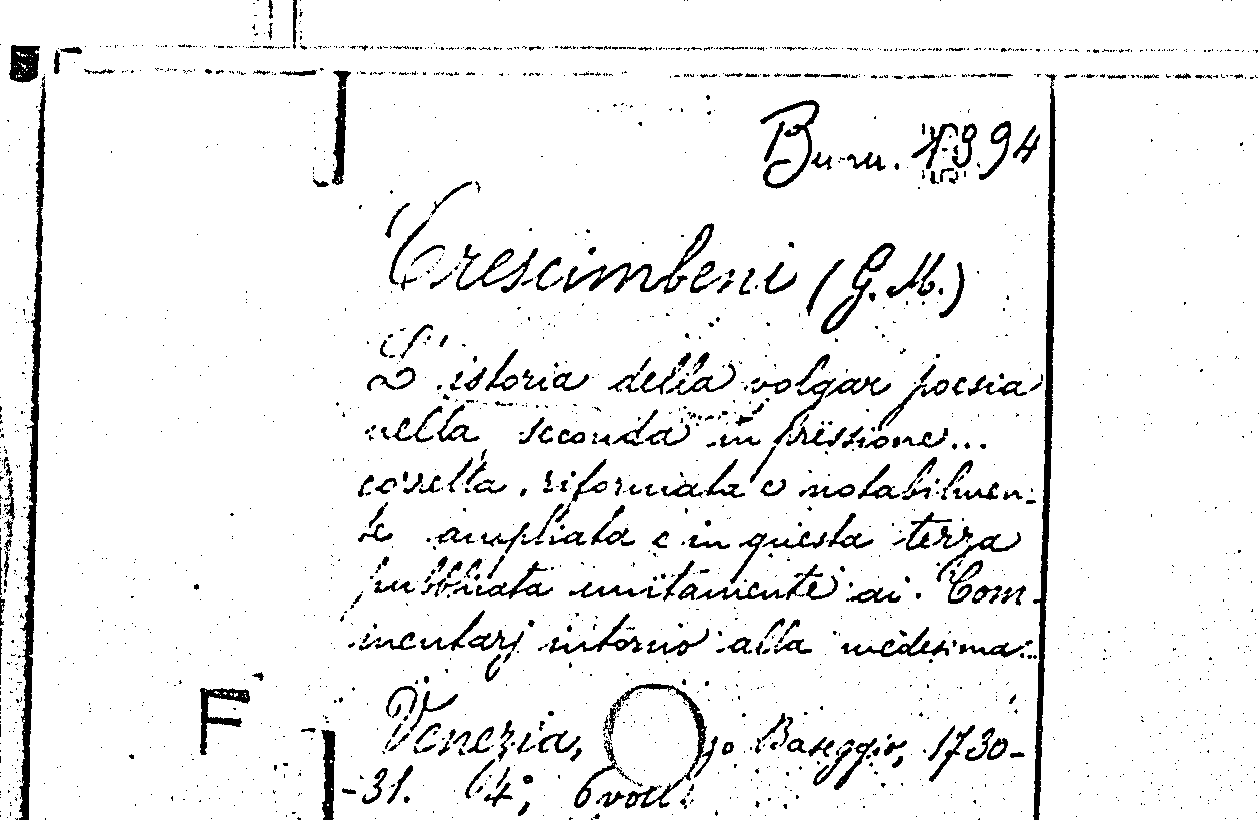 Bunu. 4394
Crescimbeni (G. M.)
L'istoria della volgar poesia
nella seconda impressione...
corretta, riformata e notabilmen-
te ampliata e in questa terza
pubblicata unitamente ai Com-
mentarj intorno alla medesima...
Venezia, Baseggio, 1730-
-31. 4°, 6 voll.
F